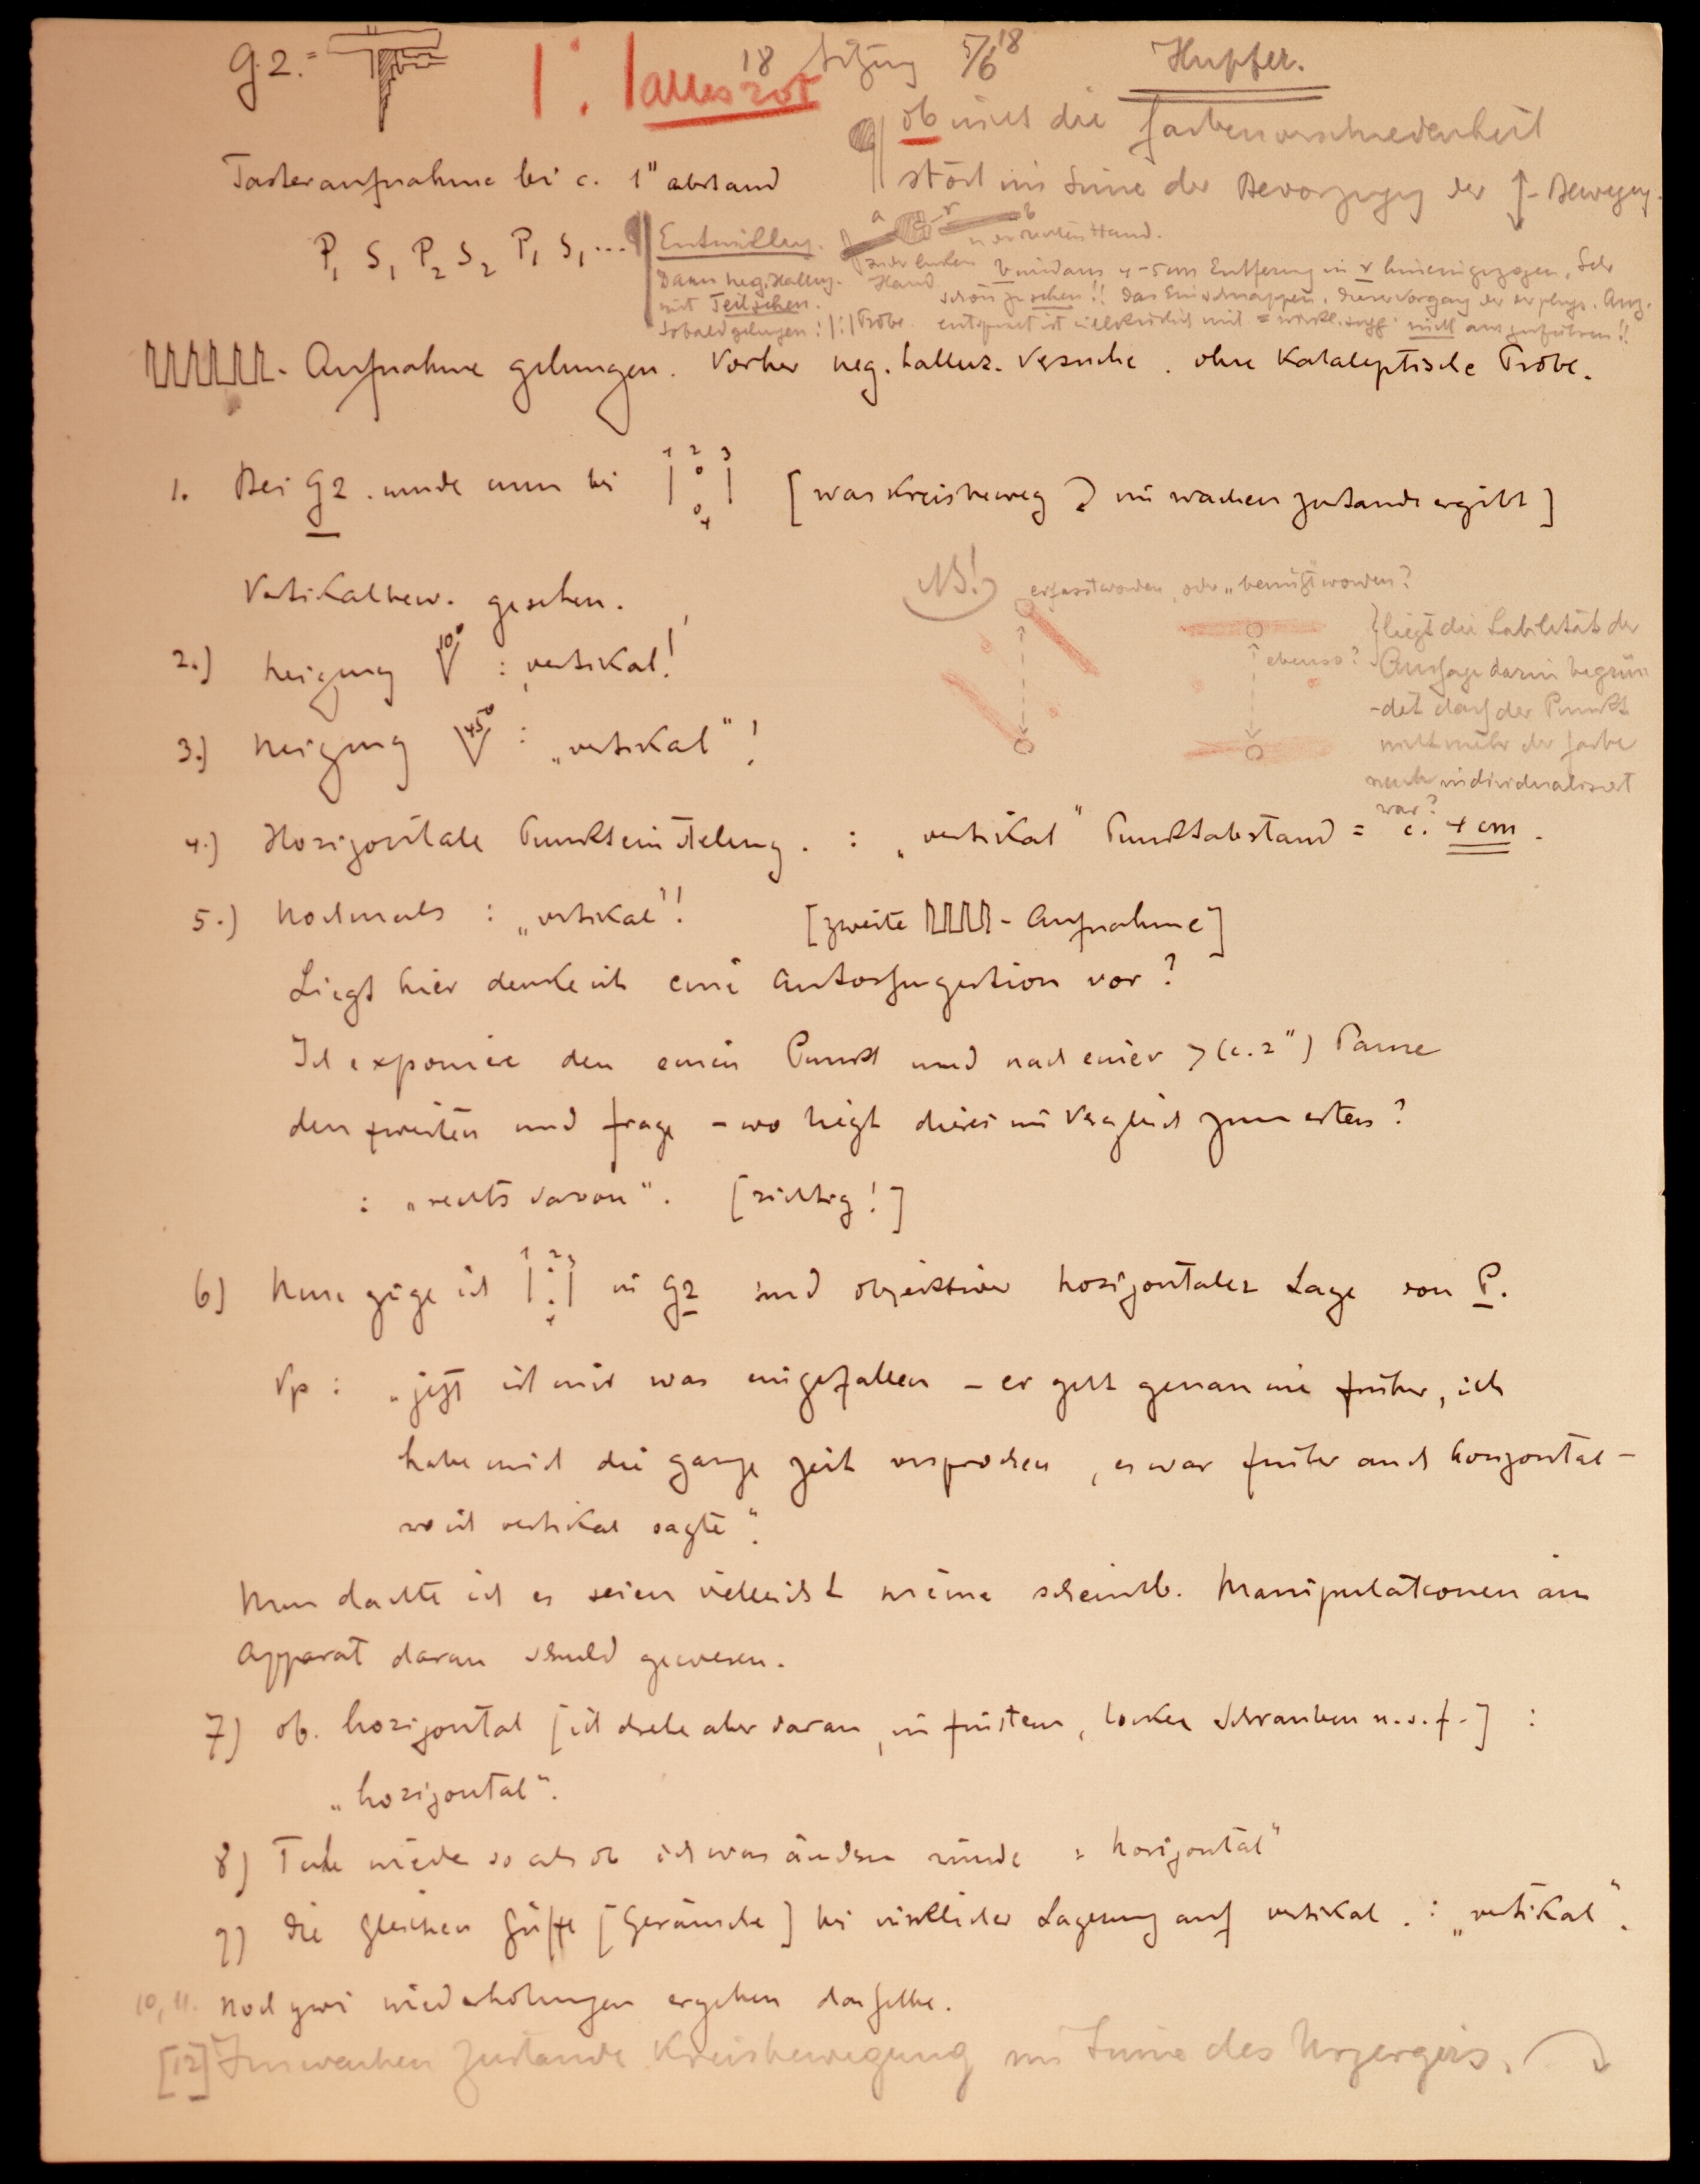 G2. =
|:| alles rot
18 Sitzung 5/6 18
Hupfer.
ob nicht die Farbenverschiedenheit
stört im Sinne der Bevorzugung der ↕ - Bewegung.
Tasteraufnahme bei c. 1" abstand
P1 S1 P2 S2 P1 S1 ...
Entwicklung.
a r b
in der linken Hand
in der rechten Hand.
Dann neg. Halluz.
mit Teilsehen.
Sobald gelungen : |:| Probe.
b wird aus 4-5 cm Entfernung in r hineingezogen. Sehr
schön zu sehen!! Das Einschnappen. Dieser Vorgang der
entspricht ist willkürlich mit nicht auszuführen!!
- Aufnahme gelungen. Vorher neg. halluz. Versuche. ohne Kataleptische Probe.
1. Bei G2. wurde nun bei 1 2 3 4 [was Kreisbeweg im wachen Zustande ergibt]
Vertikalbew. gesehen.
NB! erfasst worden, oder "benützt" worden?
2.) Neigung 10° : vertikal!
ebenso?
liegt die Labilität der
Aussage darin begrün
-det dass der Punkt
nicht mehr der Farbe
nach individualisiert
war?
3.) Neigung 45° : „vertikal"!
4.) Horizontale Punkteinstellung. : „vertikal" Punktabstand = c. 4 cm.
5.) Nochmals : „vertikal"! [zweite - Aufnahme]
Liegt hier denke ich eine Autosuggestion vor?
Ich exponiere den einen Punkt und nach einer > (c. 2") Pause
den zweiten und frage - wo liegt dieser im Vergleich zum ersten?
: „rechts davon". [richtig!]
6) Nun zeige ich 1 2 3 4 in G2 und objektiver horizontaler Lage von P.
Vp : „jetzt ist mir was eingefallen - er geht genau wie früher, ich
habe mich die ganze Zeit versprochen, es war früher auch horizontal -
wo ich vertikal sagte".
Nun dachte ich es seien vielleicht meine scheinb. Manipulationen am
Apparat daran schuld gewesen.
7) ob. horizontal [ich drehe aber daran, im finstern, locker Schrauben u.s.f.] :
„horizontal".
8) Tuhe wieder so als ob ich was ändern würde : horizontal"
9) Die gleichen Griffe [Geräusche] bei wirklicher Lagerung auf vertikal. : „vertikal".
10, 11. Noch zwei wiederholungen ergeben dasselbe.
[12] Im wachen Zustande Kreisbewegung im Sinne des Urzeigers.